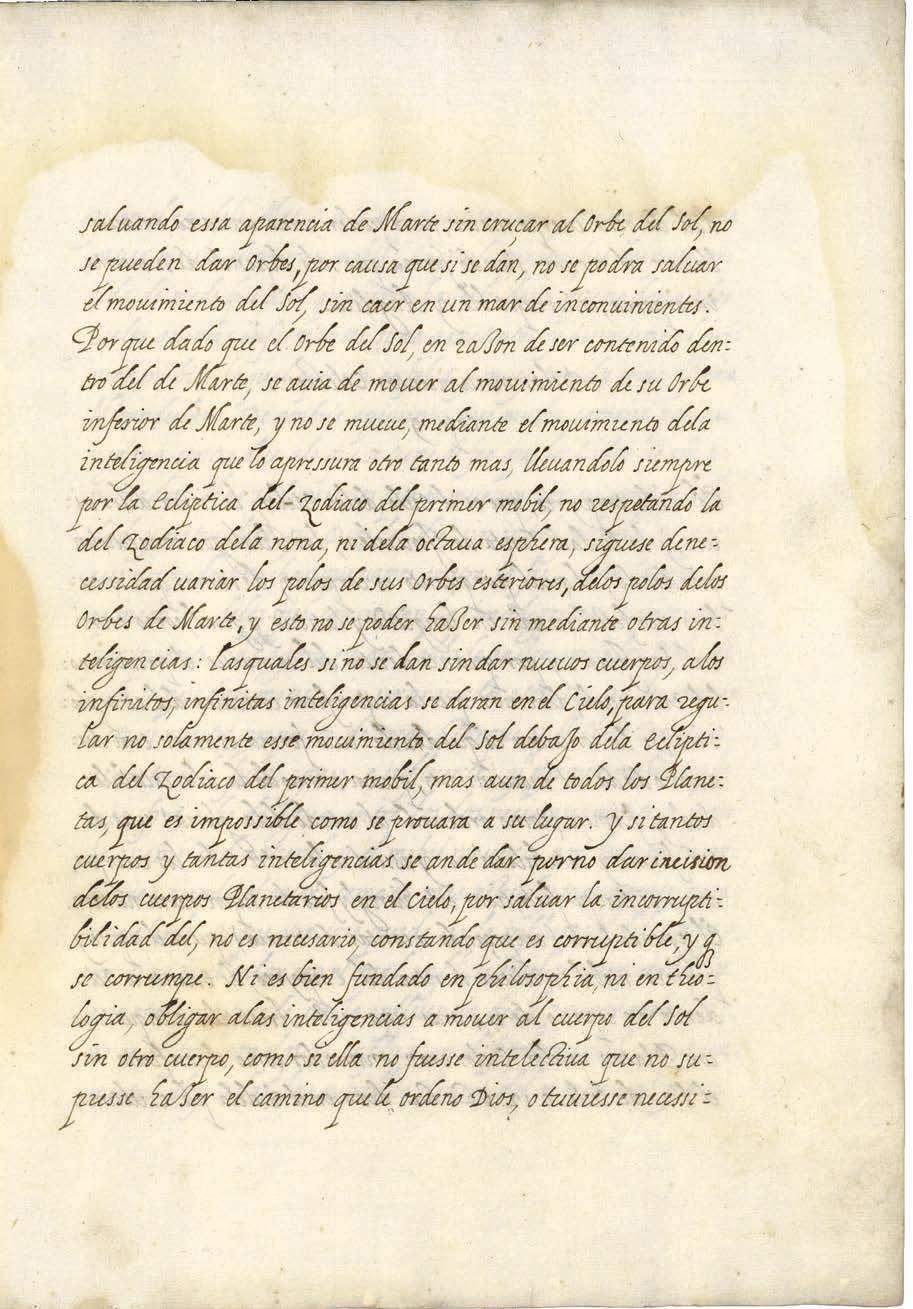 saluando essa aparencia de Marte sin cruçar al Orbe del Sol, no
se pueden dar Orbes, por causa que si se dan, no se podra saluar
el mouimiento del Sol, sin caer en un mar de inconuinientes.
Porque dado que el Orbe del Sol, en razon de ser contenido den:
tro del de Marte, se auia de mouer al mouimiento de su Orbe
inferior de Marte, y no se mueue, mediante el mouimiento dela
inteligencia que lo apressura otro tanto mas, lleuandolo siempre
por la Ecliptica del Zodiaco del primer mobil, no respetando la
del Zodiaco dela nona, ni dela octaua esphera, siguese dene:
cessidad uariar los polos de sus Orbes esteriores, delos polos delos
Orbes de Marte, y esto no se poder hazer sin mediante otras in:
teligencias: lasquales si no se dan sin dar nueuos cuerpos, a los
infinitos, infinitas inteligencias se daran en el Cielo, para regu:
lar no solamente esse mouimiento del Sol debajo dela Eclipti:
ca del Zodiaco del primer mobil, mas aun de todos los Plane:
tas, que es impossible como se prouara a su lugar. Y si tantos
cuerpos y tantas inteligencias se an de dar por no dar incision
delos cuerpos Planetarios en el Cielo, por saluar la incorrupti:
bilidad del, no es necesario, constando que es corruptible, y q
se corrumpe. Ni es bien fundado en philosophia, ni en theo:
logia, obligar alas inteligencias a mouer al cuerpo del Sol
sin otro cuerpo, como si ella no fuesse intelectiua que no su:
piesse hazer el camino que le ordeno Dios, o tuuiesse necessi: